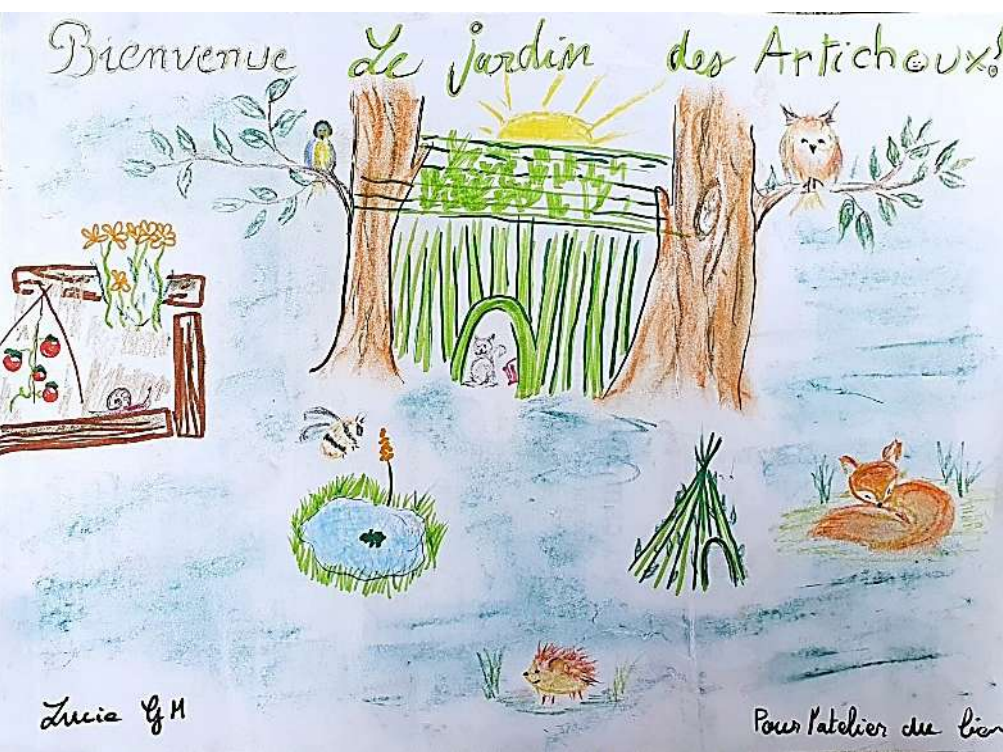 Bienvenue Le jardin des Artichoux!
Lucie G M
Pour l'atelier du lien